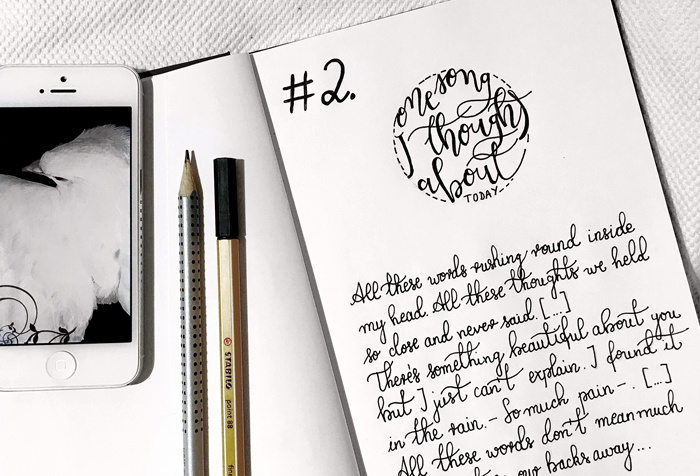 #2.
one song
I thought
about
TODAY
All these words rushing round inside
my head. All these thoughts we held
so close and never said. [...]
There's something beautiful about you
but I just can't explain. I found it
in the rain. - So much pain -. [...]
All these words don't mean much
our backs away...
STABILO
point 88
fine